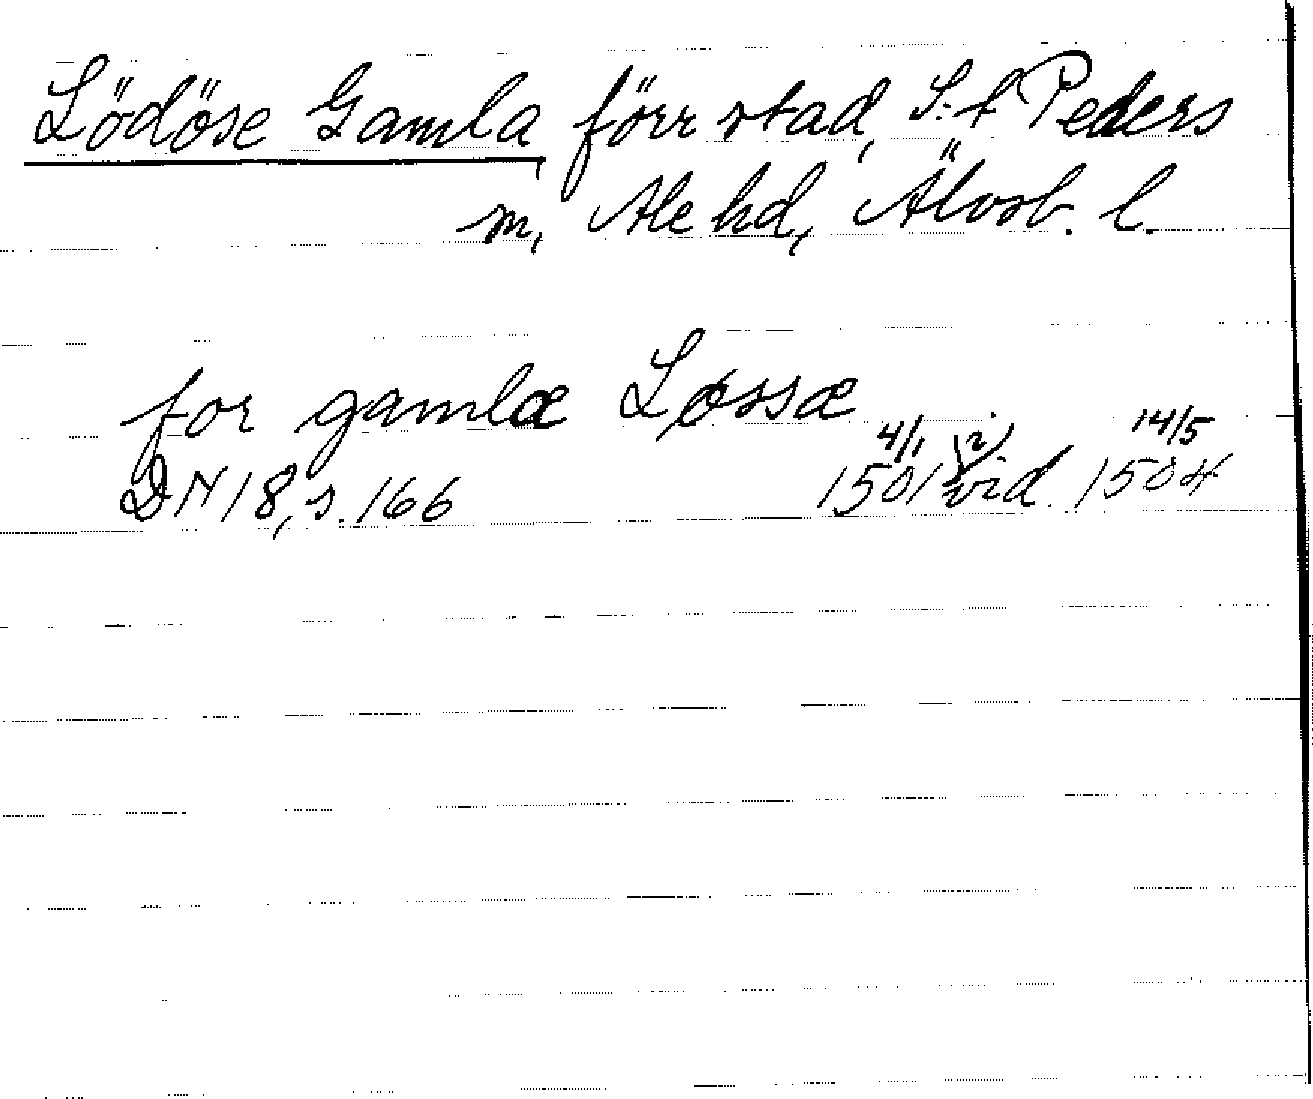 Lödöse Gamla, förr stad, S:t Peders
sn, Ale hd, Älvsb. l.
for gamlæ Løssæ
4/1 (?) 14/5
DN 18, s. 166 1501 vid. 1504